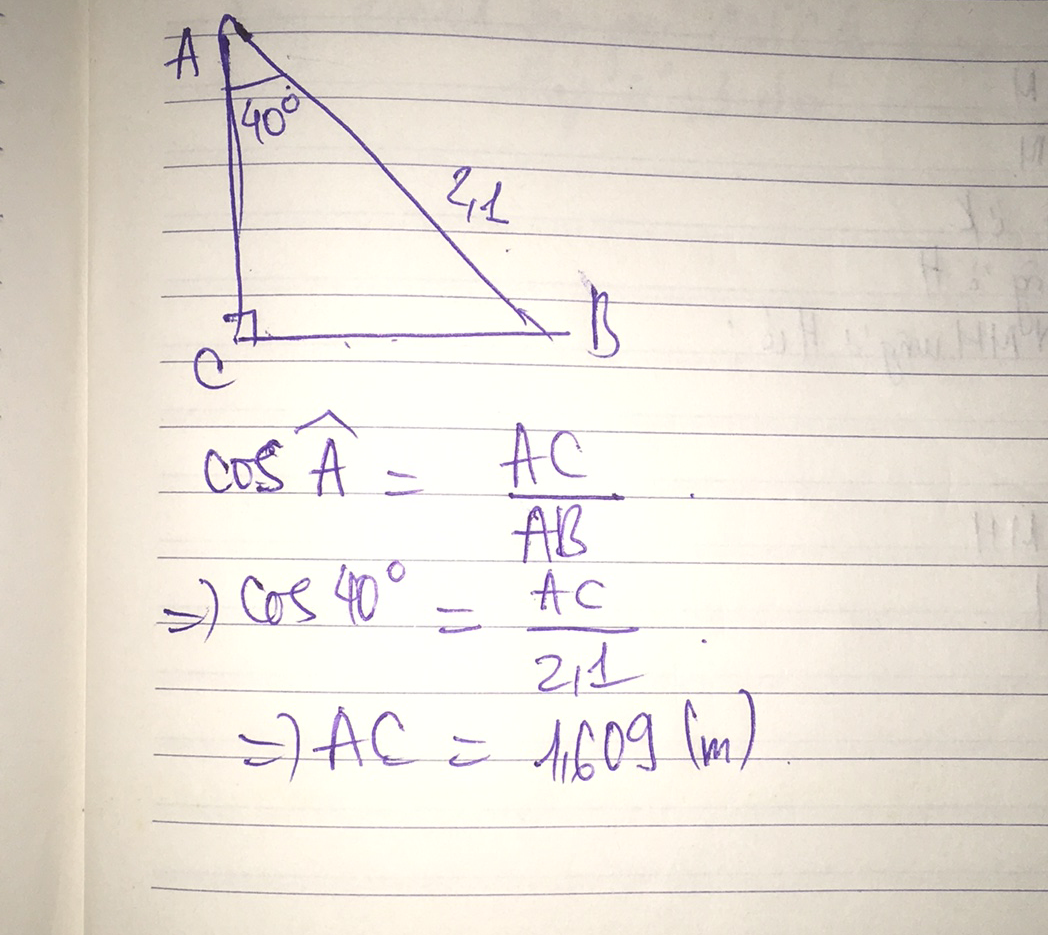 A
40°
2,1
B
C
cos Â = AC/AB
=> cos 40° = AC/2,1
=> AC = 1,609 (m)